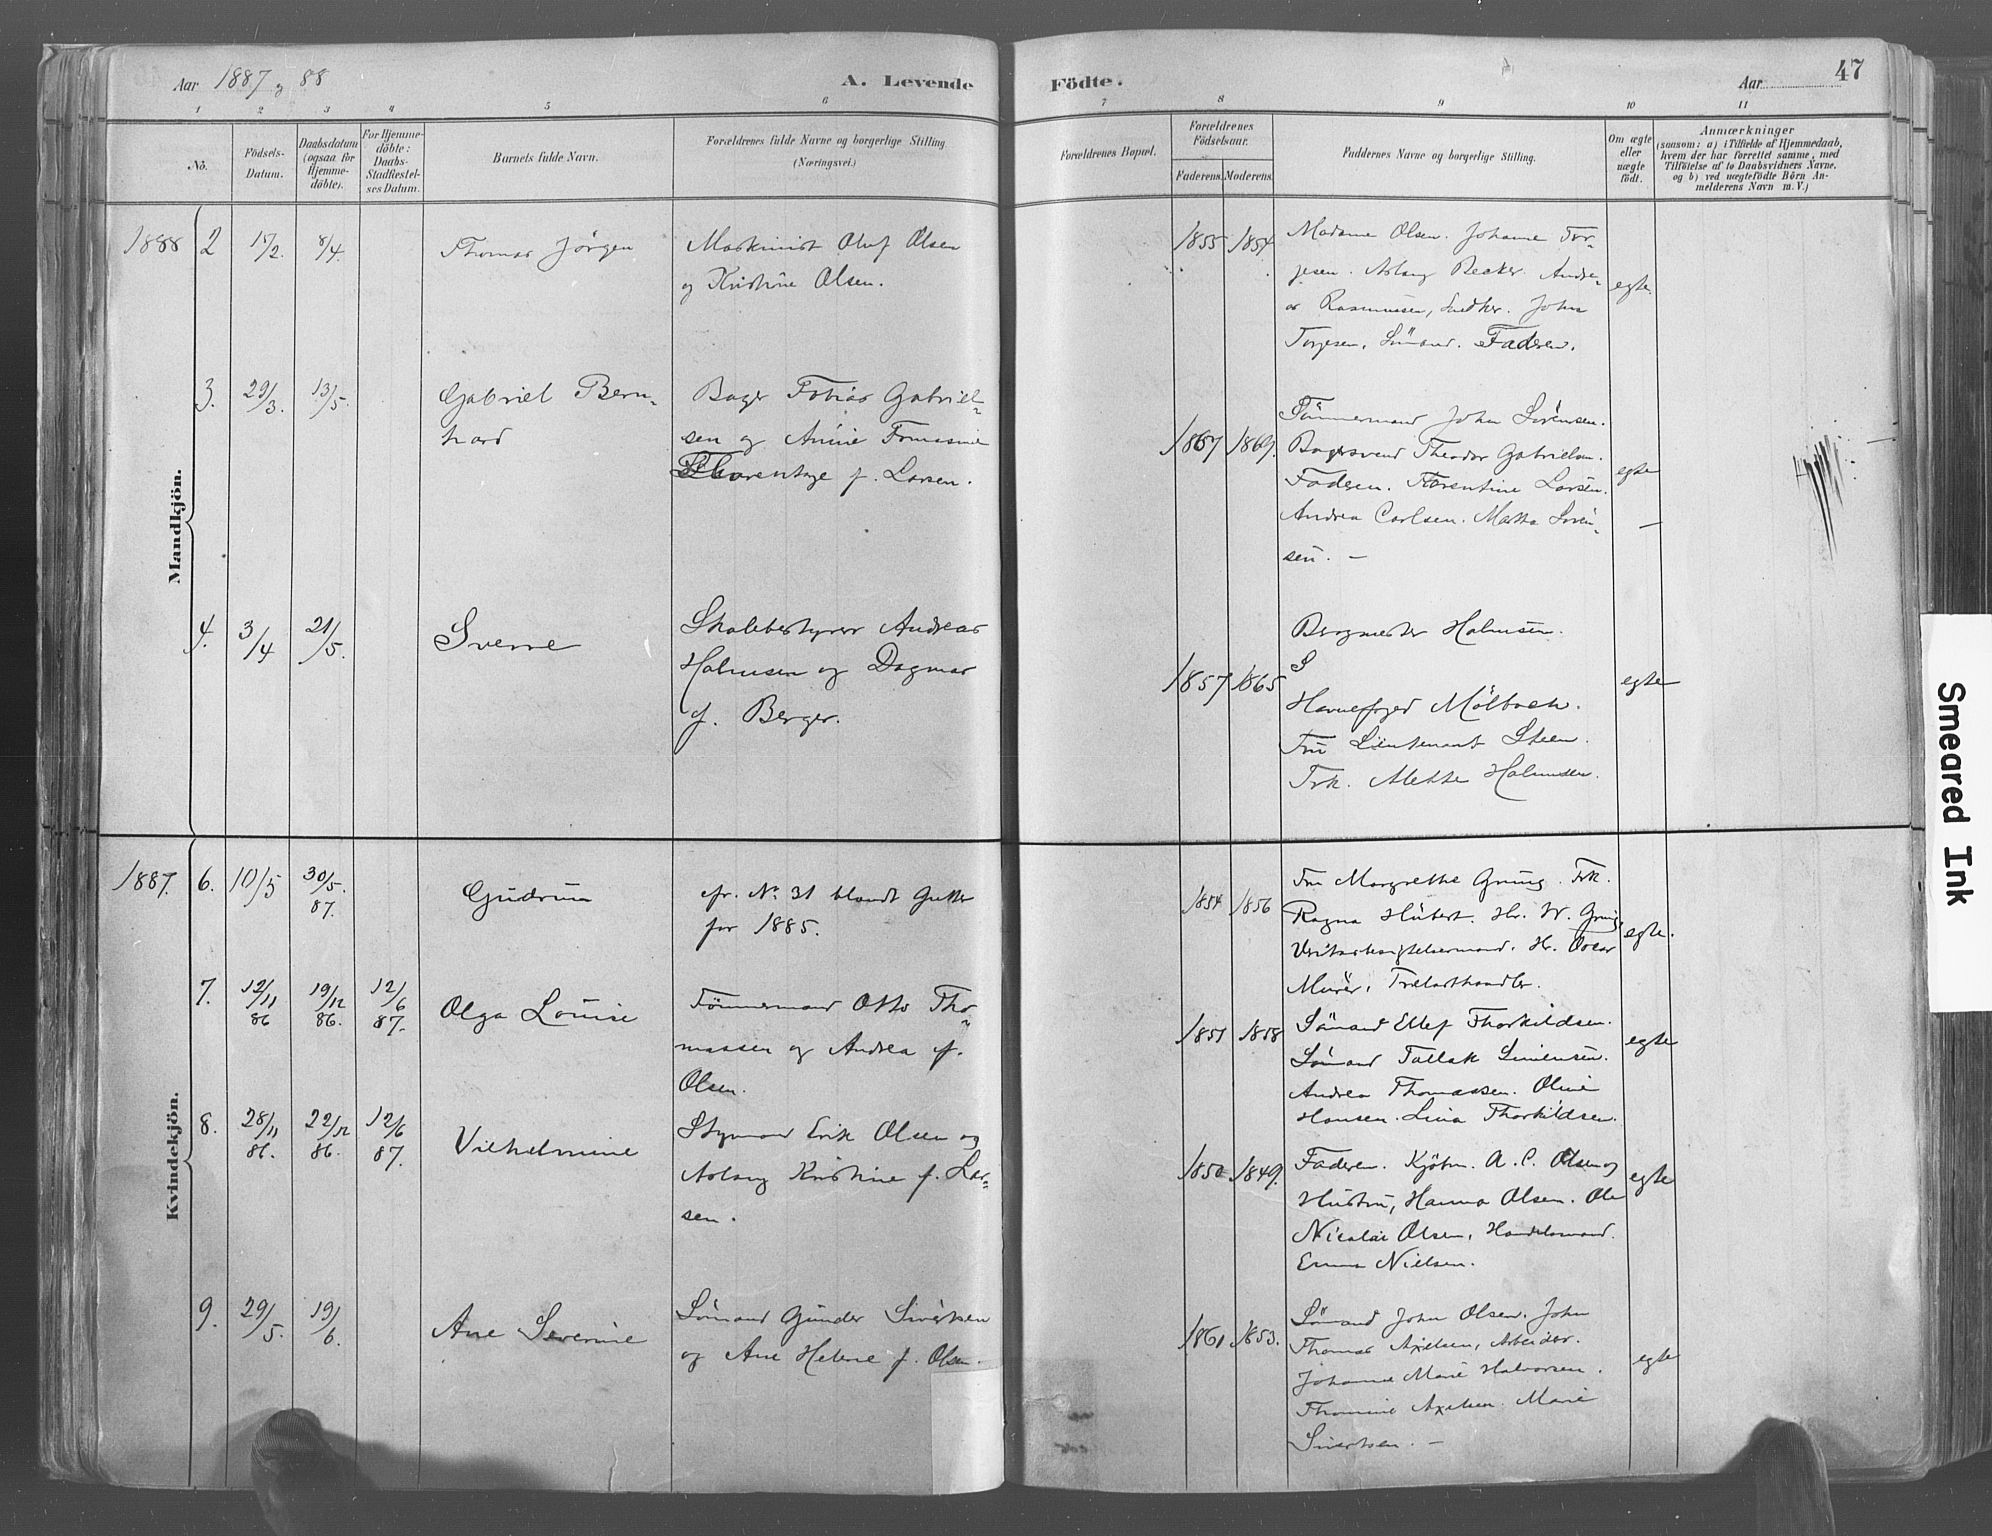 Aar 1887 og 88
A. Levende
Födte.
Aar
47
1 2 3 4 5 6 7 8 9 10 11
No.
Födsels-
Datum.
Daabsdatum
(ogsaa for
Hjemme-
döbte).
For Hjemme-
döbte:
Daabs-
Stadfæstel-
ses Datum.
Barnets fulde Navn.
Forældrenes fulde Navne og borgerlige Stilling
(Næringsvei.)
Forældrenes Bopæl.
Forældrenes
Födselsaar.
Faderens. Moderens.
Faddernes Navne og borgerlige Stilling.
Om ægte
eller
uægte
födt.
Anmærkninger
(saasom: a) i Tilfælde af Hjemmedaab,
hvem der har forrettet samme, med
Tilföielse af to Daabsvidners Navne.
og b) ved uægtefödte Börn An-
melderens Navn m. V.)
Mandkjön.
1888 2 8/4
Thomas Jörgen
Maskinist Oluf Olsen
og Kristine Olsen.
1855 1854
Madame Olsen. Johanne Tor-
jesen. Aslaug Becker. Andre-
as Rasmussen, Snedker. John
Torjesen, Sömand. Faderen.
egte.
3. 29/3. 13/5.
Gabriel Bern-
hard
Bager Tobias Gabriel-
sen og Annie Tomasine
f. Larsen.
1867 1869.
Tömmermand John Sörensen.
Bagersvend Theodor Gabrielsen.
Faderen. Florentine Larsen.
Andrea Carlsen. Martha Sören-
sen. —
egte
—
4. 3/4 21/5.
Sverre
Skolebestyrer Andreas
Holmsen og Dagmar
f. Berger.
1857 1865
Bergmester Holmsen.
S
Havnefoged Mölbach.
Fru Lieutenant Steen.
Frk. Alethe Holmsen.
egte
Kvindekjön.
1887. 6. 10/5 30/5.
87.
Gudrun
cfr. No 31 blandt Gutter
for 1885.
1854 1856
Fru Margrethe Gruig. Frk.
Ragna Hübert. Hr. W. Gruig,
Hr. Oscar
Murer, Trelasthandler.
egte.
7. 12/11
86
19/12
86.
12/6
87.
Olga Louise
Tömmermand Otto Tho-
massen og Andrea f.
Olsen.
1851 1858
Sömand Ellef Thorkildsen.
Sömand Tallak Simensen.
Andrea Thomassen. Oline
Hansen. Lina Thorkildsen.
egte
8. 28/11
86.
22/12
86.
12/6
87.
Vilhelmine
Styrmand Erik Olsen og
Aslaug Kristine f. Lar-
sen.
1850 1849.
Faderen. Kjöbm. A. C. Olsen og
Hustru, Hanna Olsen. Ole
Nicolai Olsen, Handelsmand.
Emma Nielsen.
egte
9. 29/5. 19/6.
Ane Severine
Sömand Gunder Sivertsen
og Ane Helene f. Olsen.
1861 1853.
Sömand John Olsen. John
Thomas Axelsen, Arbeider.
Johanne Marie Halvorsen.
Thomine Axelsen. Marie
Sivertsen. —
egte
Smeared Ink